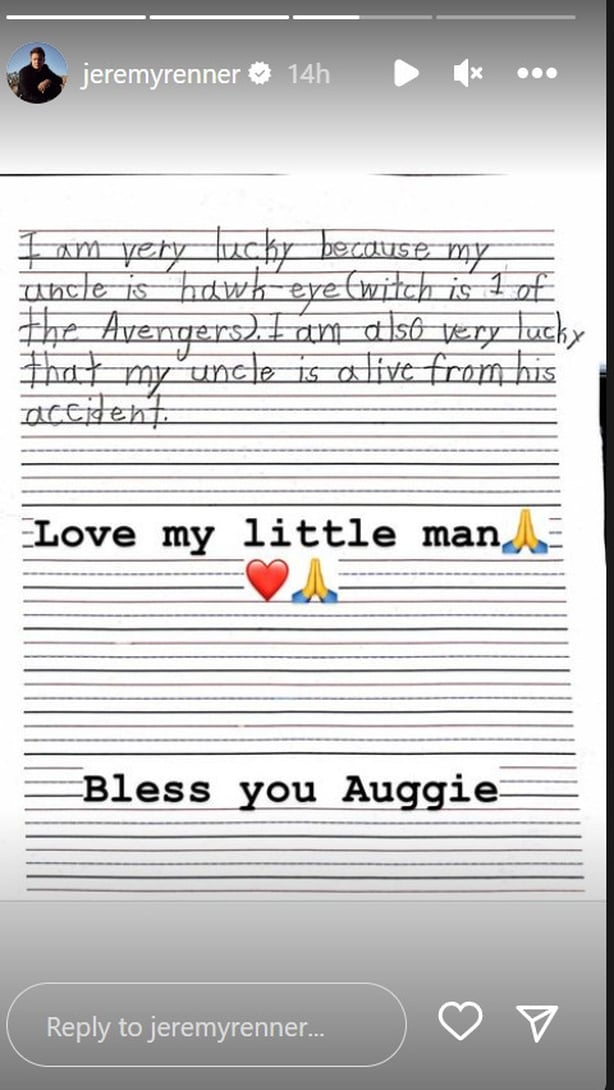 jeremyrenner 14h
I am very lucky because my
uncle is hawk-eye(witch is 1 of
the Avengers). I am also very lucky
that my uncle is alive from his
accident.
Love my little man🙏
❤️🙏
Bless you Auggie
Reply to jeremyrenner...